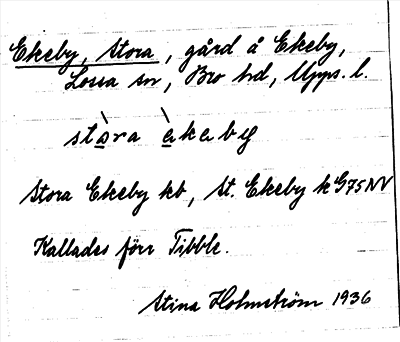 Ekeby, Stora, gård å Ekeby,
Lossa sn, Bro hd, Upps. l.
stòra èkeby
Stora Ekeby kb, St. Ekeby k G75NV
Kallades förr Tibble.
Stina Holmström 1936